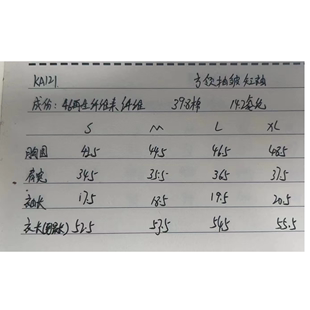 KA121 方领抽皱短款
成份: 46再生纤维素纤维 39.8棉 14.2氨纶
S M L XL
胸围 43.5 44.5 46.5 48.5
肩宽 34.5 35.5 36.5 37.5
袖长 17.5 18.5 19.5 20.5
衣长 52.5 53.5 54.5 55.5